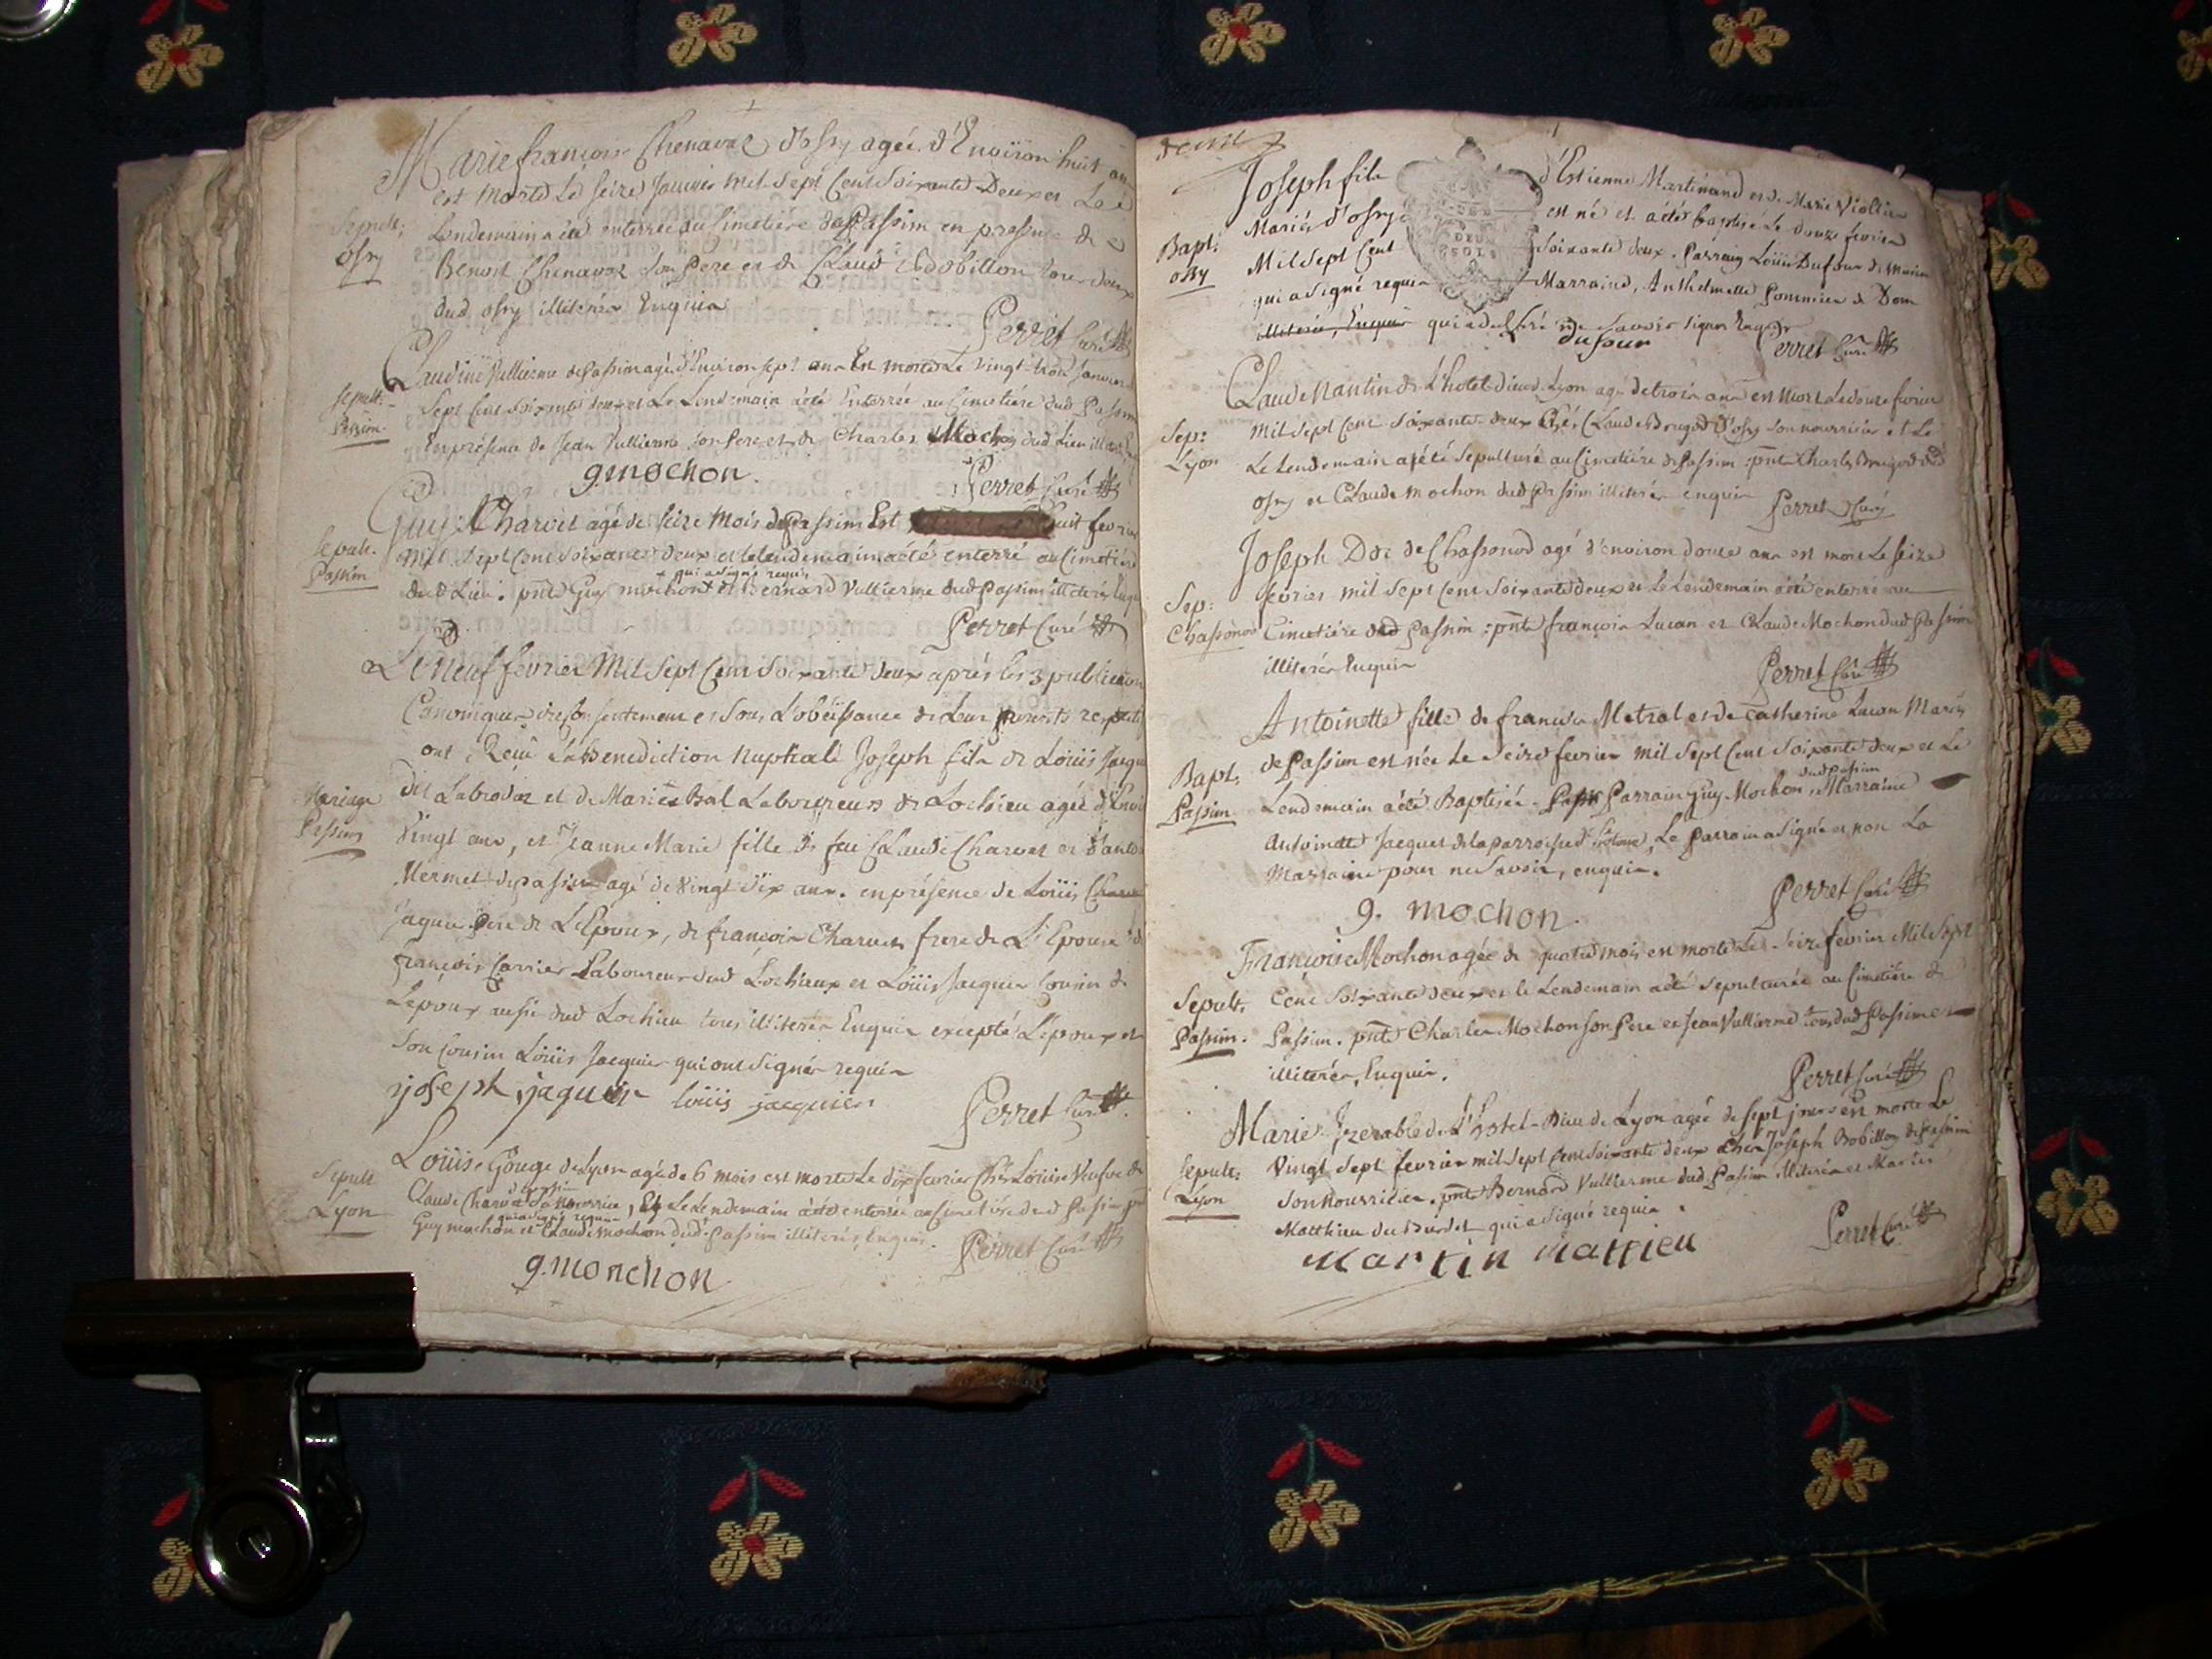 Marie françoise Chenaval d'ossy agée d'Environ huit ans
est morte Le seize Janvier Mil Sept Cent Soixante Deux et Le
Sepult:
ossy
Lendemain a été enterrée au Cimetiére de Passim en presence de
Benoit Chenaval son Pere et de Claude Bobillon tous deux
dud. ossy illiterés Enquis
Perret Curé
Claudine Vullierme de Passim agé d'Environ sept ans Est morte Le vingt trois Janvier
Sepult:
Passim
Sept Cent soixante deux et Le Lendemain a été Enterrée au Cimetiére dud Passim
En présence de Jean Vullierme son Pere et de Charles Mochon dud Lieu
gmochon
Perret Curé
Guy Charvet agé de seize Mois de Passim Est huit fevrier
Sepult.
Passim
Mil Sept Cent Soixante deux et le lendemain a été enterré au Cimetiére
qui a signé requis
dud Lieu. pnts Guy mochon et Bernard Vullierme dud Passim illiteré
Perret Curé
Le Neuf fevrier Mil Sept Cent Soixante deux aprés les 3 publications
Canoniques du Consentement et sous L'obéissance de Leurs parents
ont Reçû La Benediction Nuptiale Joseph fils de Loüis Jaquier
Mariage
Passim
dit et de Marie Bal Laboureurs de Lochieu agée
Vingt ans, et Jeanne Marie fille de feu Claude Charvet et
Mermet de passim agé de Vingt Six ans. en présence de Loüis
Jaquier Pere de L'Epoux, de françois Charvet frere de L'Epouse
françois Carrier Laboureur dud Lochieux et Loüis Jacquier Cousin de
L'époux aussi dud Lochieu tous illiterés Enquis excepté L'époux et
Son Cousin Loüis Jacquier qui ont signés requis
joseph jaquier loüis jacquier
Perret Curé
Loüise Gouge de Lyon agée de 6 mois est morte Le dix fevrier Chés Loüise Veufve de
Sepult
Lyon
Claude Charvet sa nourrice, Et Le Lendemain a été enterrée au Cimetiére dud Passim
qui a signé requis
Guy mochon et Claude Mochon dud. Passim illiterés Enquis.
Perret Curé
g.monchon
Joseph fils d'Estienne Martinand et de Marie Viollier
Bapt:
ossy
Mariés d'ossy est né et a été baptisé Le douze fevrier
DEUX
SOLS
Mil Sept Cent Soixante deux. Parrain Loüis Dufour
qui a signé requis Marraine, Anthelmette Pommier de Don
illiterée, Enquise qui a de Savoir signer
dufour
Perret Curé
Claude Nantin de L'hotel dieu de Lyon agé de trois ans est Mort Le douze fevrier
Sep:
Lyon
Mil Sept Cent Soixante-deux Chés Claude Brugod d'ossy son nourricier et Le
Le Lendemain a été Sepulturé au Cimetiére de Passim: pnts Charles Brugod dud
ossy et Claude Mochon dud Passim illiterés enquis
Perret Curé
Joseph Duc de Chassonod agé d'environ douze ans est mort Le Seize
Sep:
Chassonod
fevrier mil Sept Cent Soixante deux et Le Lendemain a été enterré au
Cimetiére dud Passim: pnts françois Lucan et Claude Mochon dud Passim
illiterés Enquis
Perret Curé
Antoinette fille de françois Metral et de Catherine Lucan Mariés
Bapt:
Passim
de Passim est née Le Seize fevrier Mil Sept Cent Soixante deux et Le
dud passim
Lendemain a été Baptisée. Parrain Guy Mochon, Marraine
Antoinette Jacquet de la parroisse, Le Parrain a signé et non La
Marraine pour ne Savoir, enquis.
Perret Curé
g. mochon.
Françoise Mochon agée de quatre mois est morte Le Seize fevrier Mil Sept
Sepult.
Passim.
Cent Soixante deux et le Lendemain a été Sepulturée au Cimetiére de
Passim. pnts Charles Mochon son Pere et Jean Vullierme tous dud Passim et
illiterés, Enquis.
Perret Curé
Marie de L'Hotel-Dieu de Lyon agée de sept jours est morte Le
Sepult:
Lyon
Vingt Sept fevrier mil Sept Cent Soixante deux chés Joseph Bobillon de Passim
Son Nourricier. pnts Bernard Vullierme dud. Passim illiterés et Martin
Matthieu qui a Signé requis.
Perret Curé
Martin Mattieu